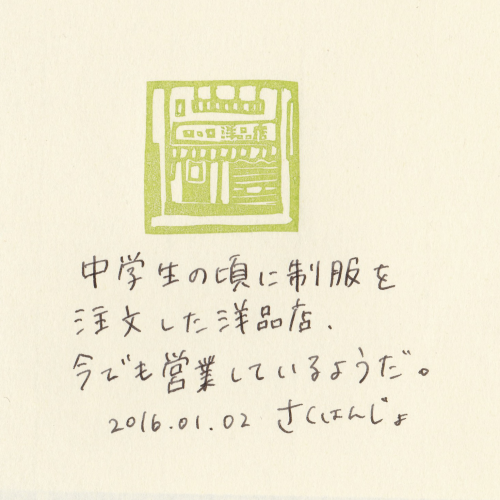 ロロロ洋品店
中学生の頃に制服を
注文した洋品店、
今でも営業しているようだ。
2016.01.02 さくはんじょ